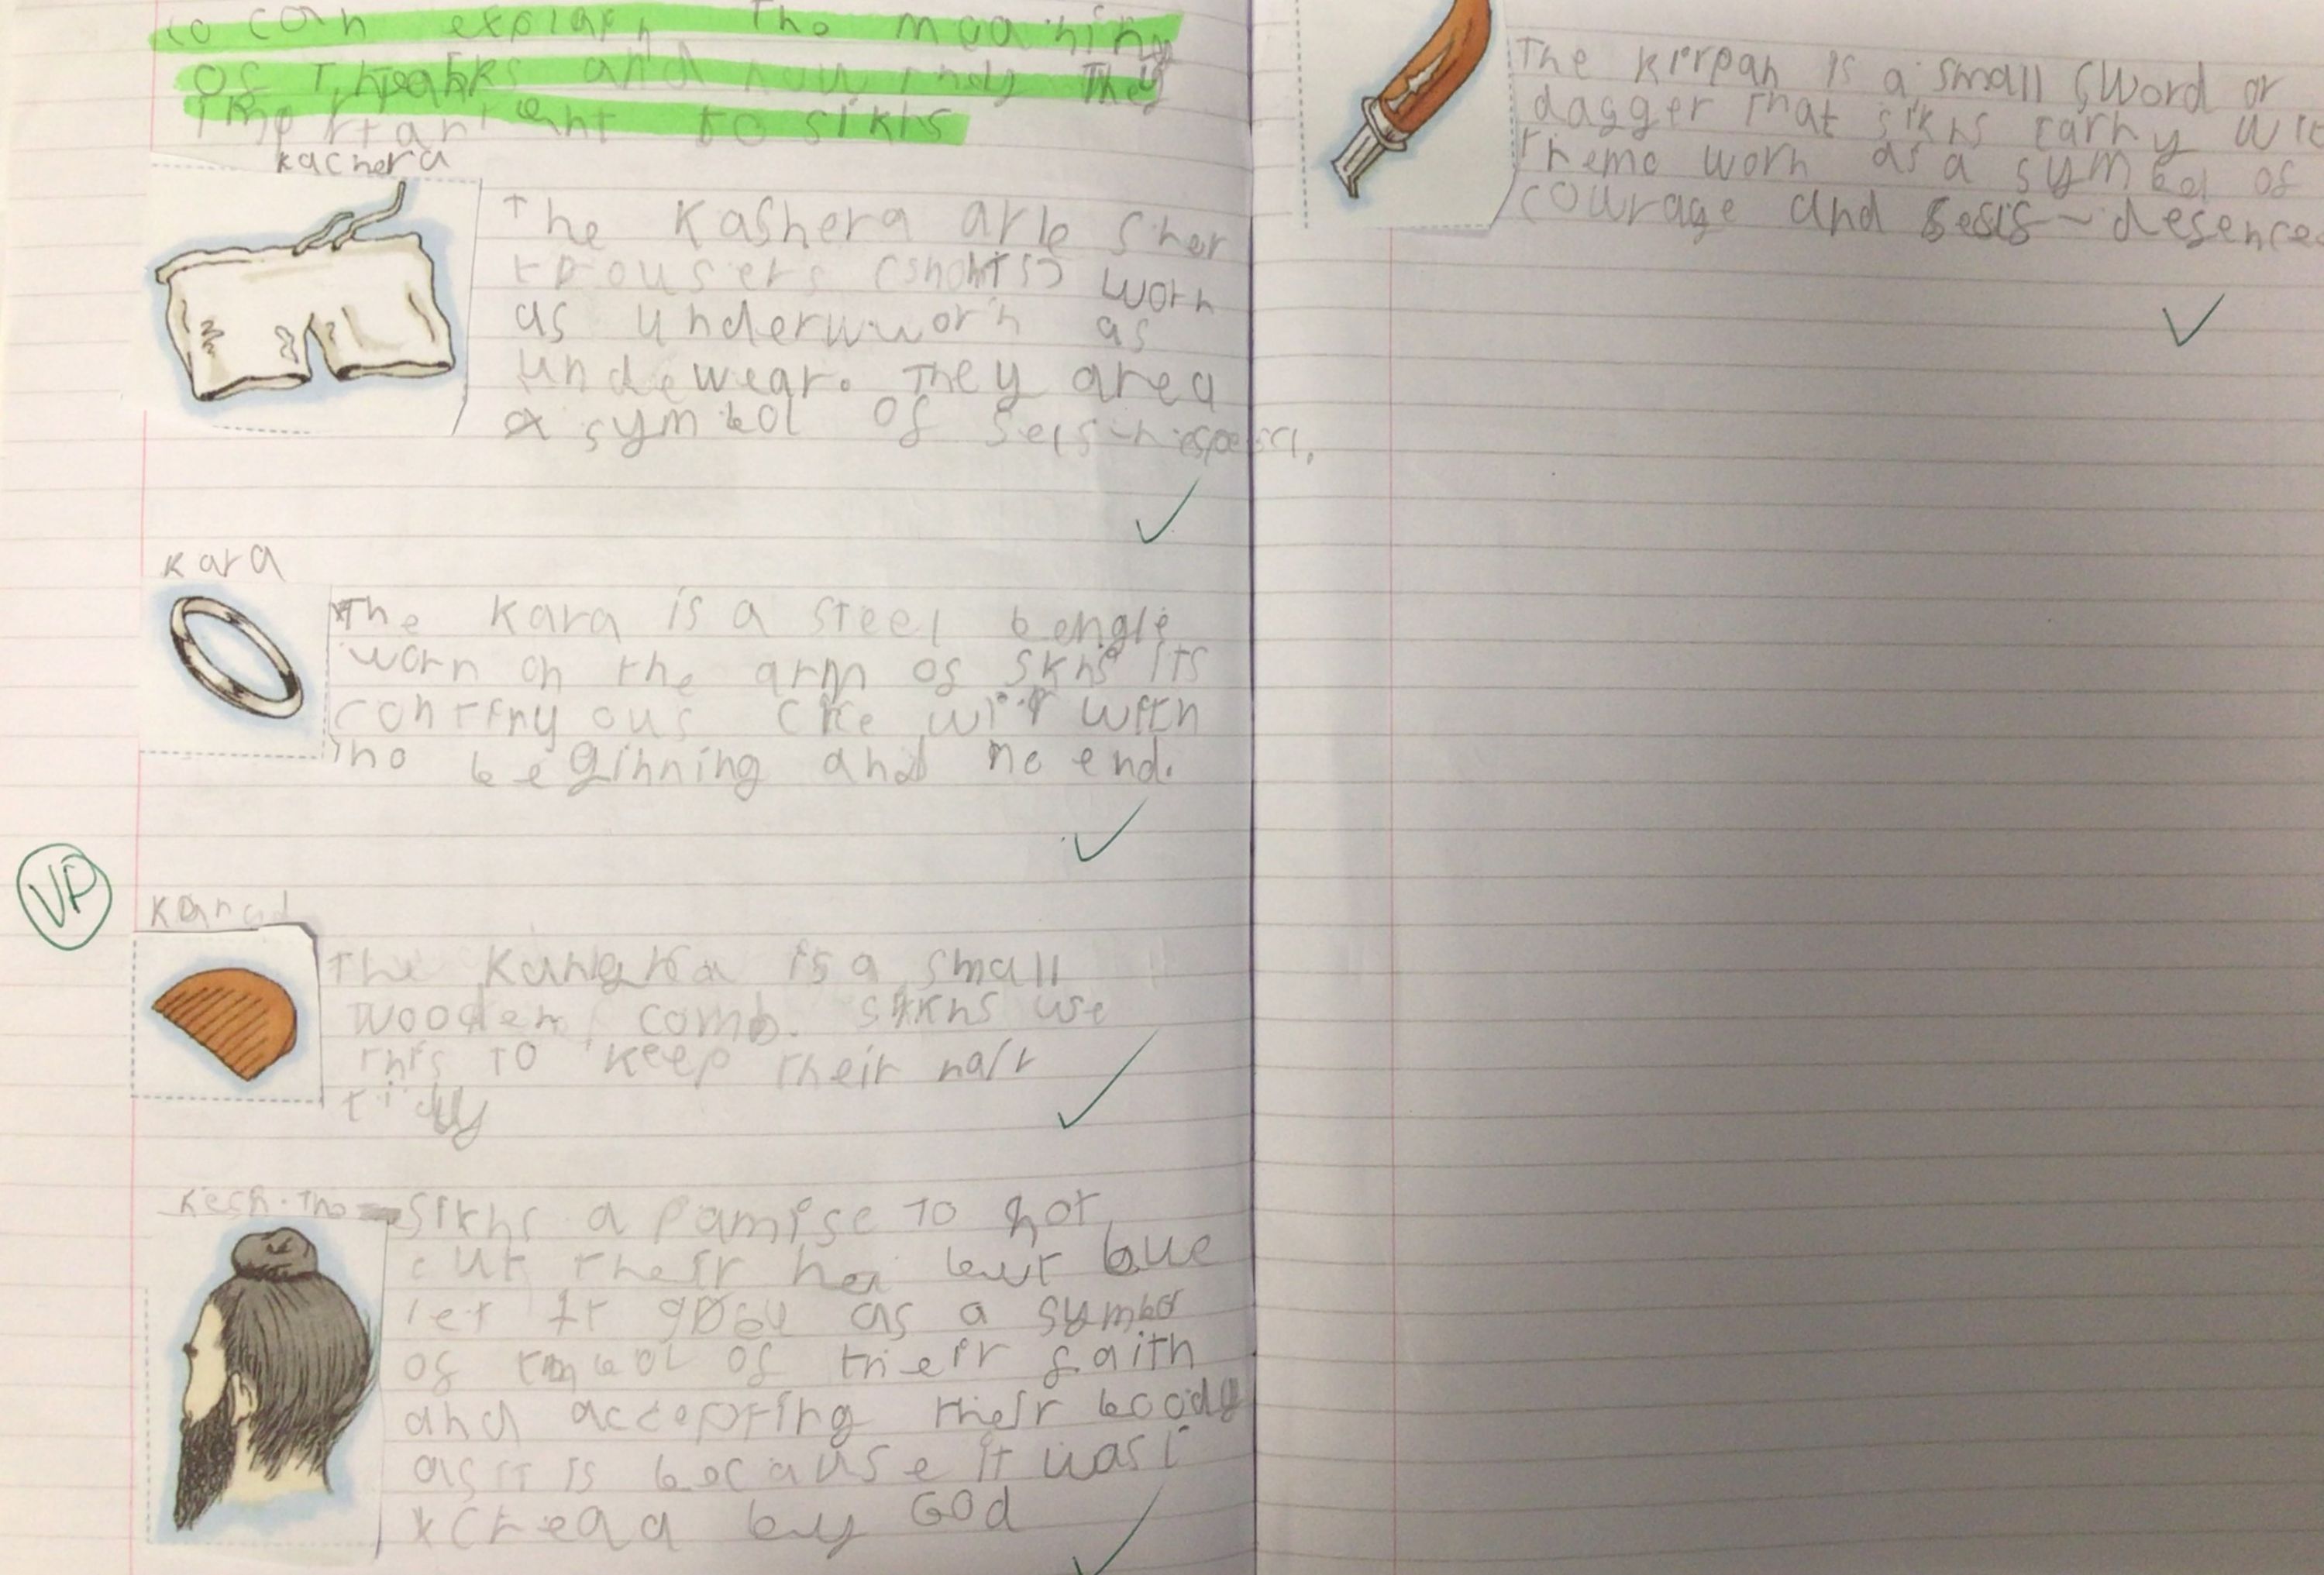 to can explain the meaning
of and how they They
to sikhs
Kachera
The Kashera are sher
trousers (shorts) worn
as underwworn as
undewear. They area
a symbol of self-respect,
Kara
The Kara is a steel bengle
worn on the arm of Skhs its
with
no beginning and no end.
VP
The Kangha is a small
wooden comb. sikhs use
this to keep their hair
tidy
Kesh. The
Sikhs a pamise to not
cut their hai but bue
let it as a symbo
of of their faith
and accepting their boody
as it is because it was i
cread by God
The Kirpan is a small sword or
dagger that sikhs carhy wit
theme worn as a symbol of
courage and - desence